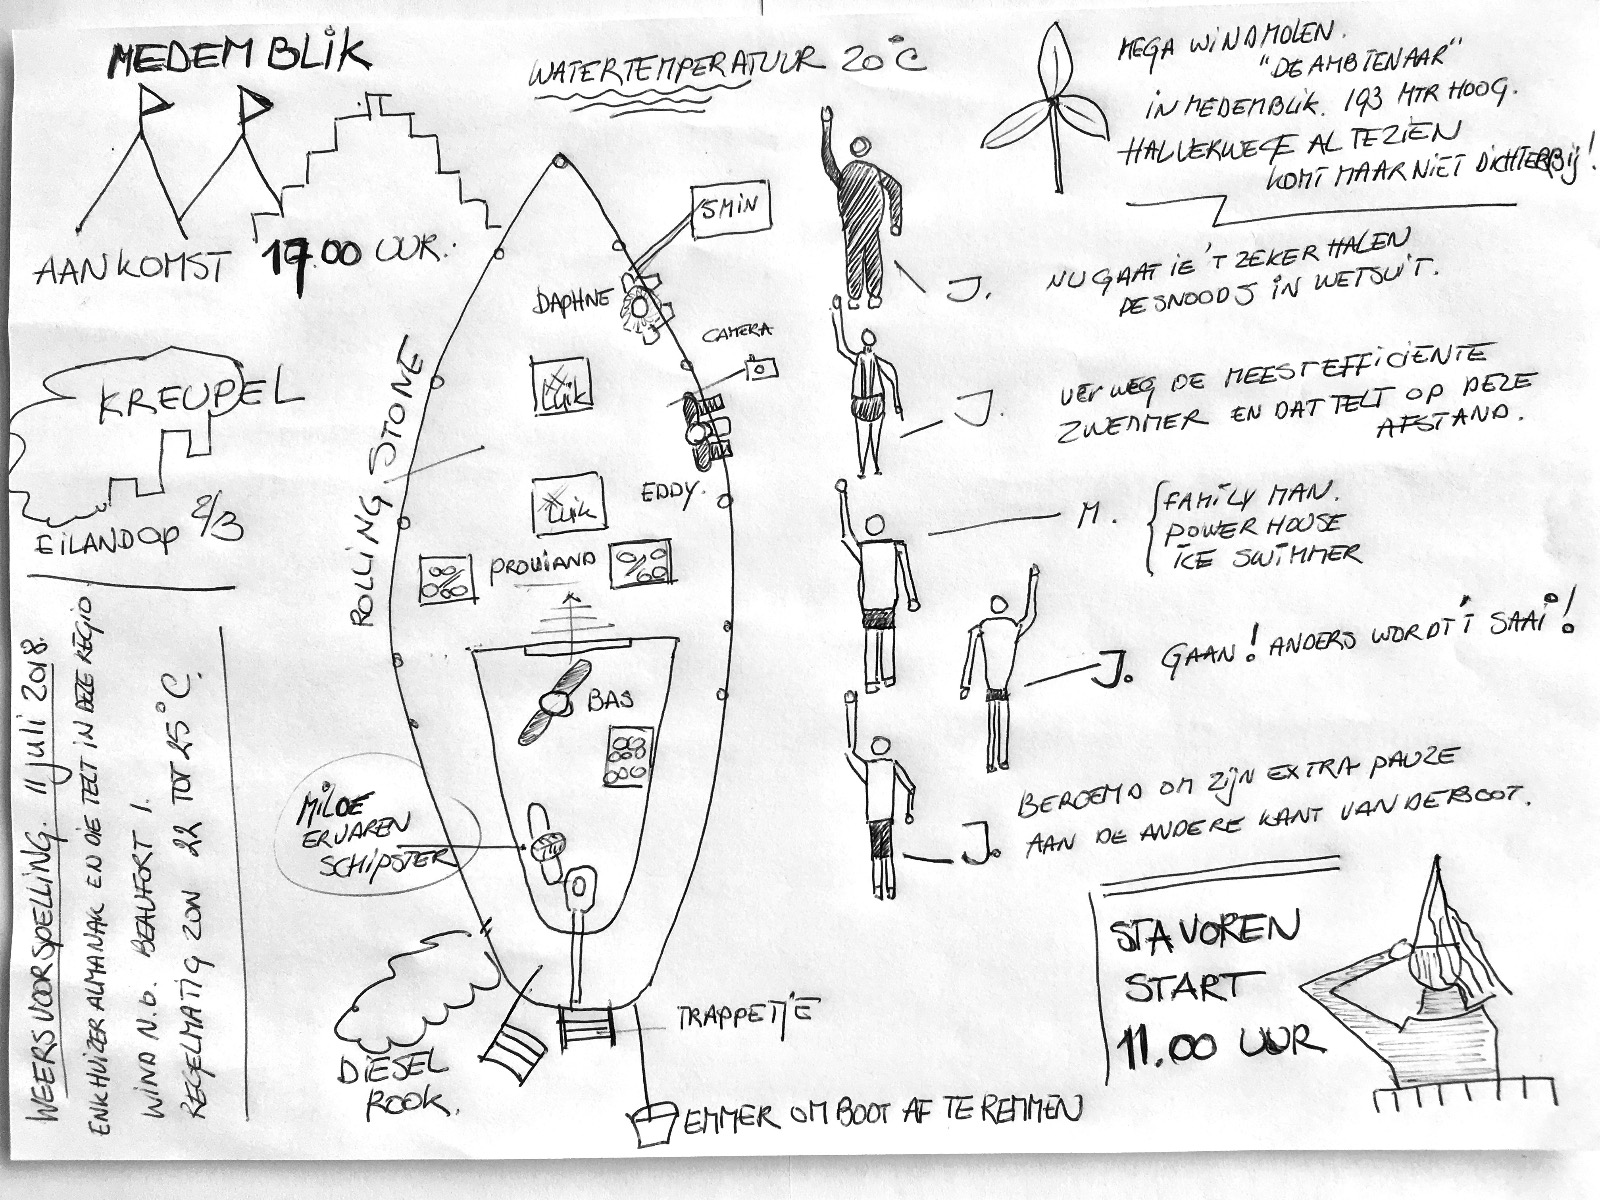 MEDEMBLIK
AANKOMST 17.00 UUR.
WATERTEMPERATUUR 20°C
MEGA WINDMOLEN.
"DE AMBTENAAR"
IN MEDEMBLIK. 193 MTR HOOG.
HALVERWEGE AL TE ZIEN
KOMT MAAR NIET DICHTERBIJ!
5MIN
DAPHNE
CAMERA
J. NU GAAT IE 'T ZEKER HALEN
DESNOODS IN WETSUIT.
KREUPEL
EILAND OP 2/3
ROLLING STONE
Luik
EDDY.
Luik
PROVIAND
J. VERWEG DE MEEST EFFICIENTE
ZWEMMER EN DAT TELT OP DEZE
AFSTAND.
M. FAMILY MAN.
POWER HOUSE
ICE SWIMMER
J. GAAN! ANDERS WORDT 'T SAAI!
BAS
MILDE
ERVAREN
SCHIPSTER
J. BEROEMD OM ZIJN EXTRA PAUZE
AAN DE ANDERE KANT VAN DE BOOT.
WEERSVOORSPELLING. 11 juli 2018.
ENKHUIZER ALMANAK EN DIE TELT IN DEZE REGIO.
WIND N.O. BEAUFORT 1.
REGELMATIG ZON 22 TOT 25°C.
DIESEL
ROOK.
TRAPPETJE
EMMER OM BOOT AF TE REMMEN
STAVOREN
START
11.00 UUR